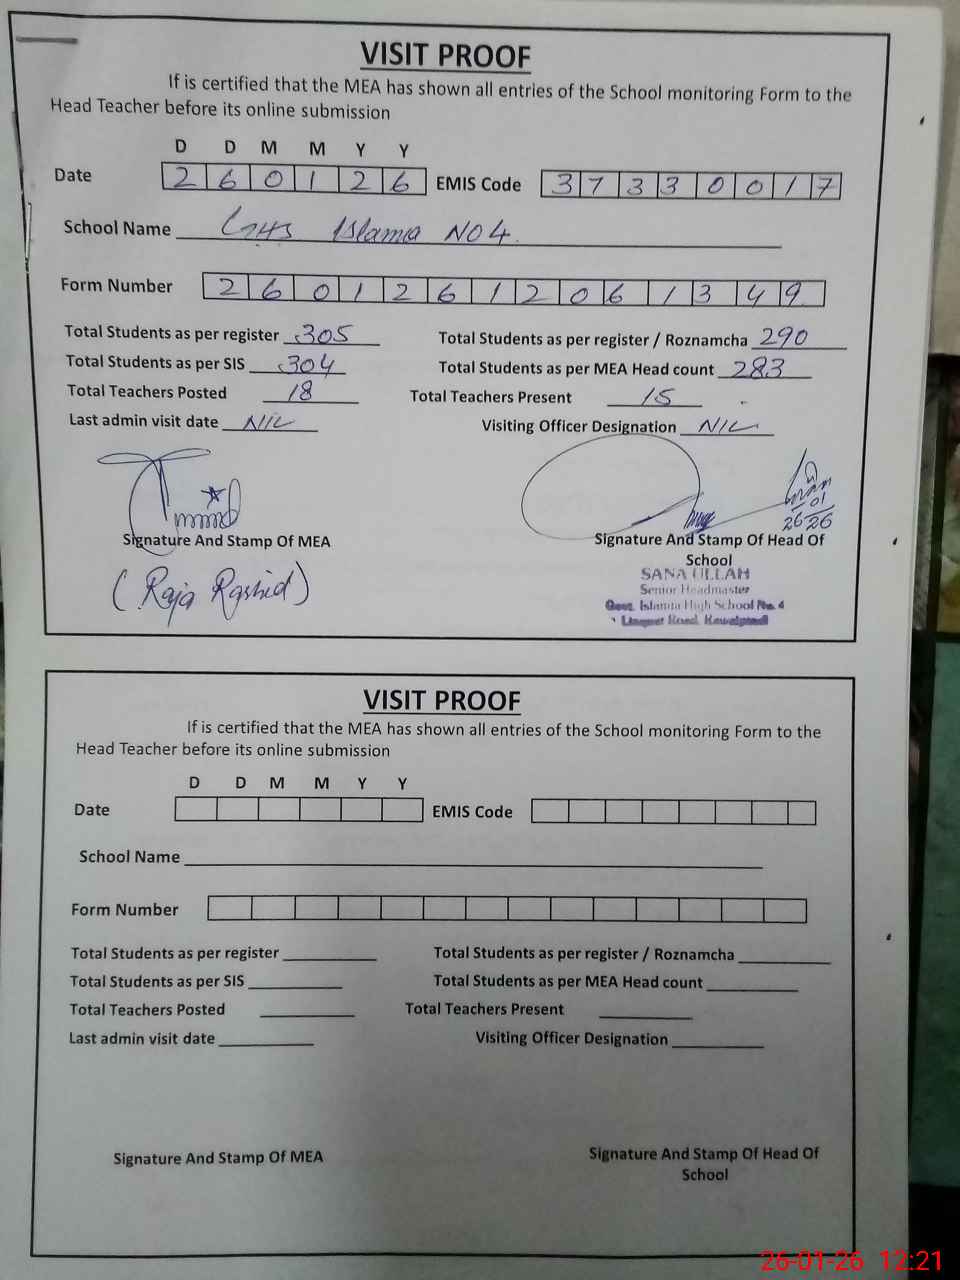 VISIT PROOF
If is certified that the MEA has shown all entries of the School monitoring Form to the
Head Teacher before its online submission
D D M M Y Y
Date 2 6 0 1 2 6 EMIS Code 3 7 3 3 0 0 1 7
School Name GHS Islamia NO 4
Form Number 2 6 0 1 2 6 1 2 0 6 1 3 4 9
Total Students as per register 305 Total Students as per register / Roznamcha 290
Total Students as per SIS 304 Total Students as per MEA Head count 283
Total Teachers Posted 18 Total Teachers Present 15
Last admin visit date NIL Visiting Officer Designation NIL
26/01/26
Signature And Stamp Of MEA Signature And Stamp Of Head Of
School
(Raja Rashid)
SANA ULLAH
Senior Headmaster
Govt. Islamia High School No. 4
Liaquat Road, Rawalpindi
VISIT PROOF
If is certified that the MEA has shown all entries of the School monitoring Form to the
Head Teacher before its online submission
D D M M Y Y
Date EMIS Code
School Name
Form Number
Total Students as per register Total Students as per register / Roznamcha
Total Students as per SIS Total Students as per MEA Head count
Total Teachers Posted Total Teachers Present
Last admin visit date Visiting Officer Designation
Signature And Stamp Of MEA Signature And Stamp Of Head Of
School
26-01-26 12:21